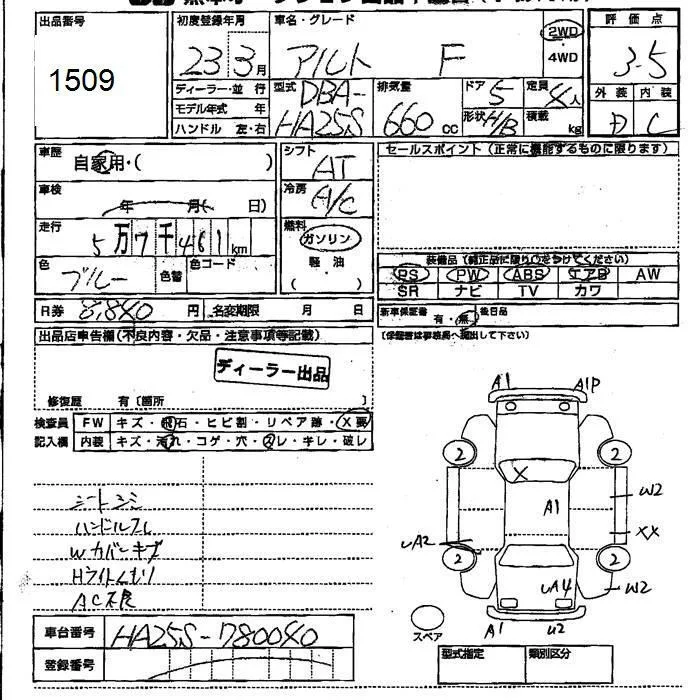 出品番号
1509
初度登録年月
23 3月
車名・グレード
アルト F
2WD
4WD
評価点
3.5
外装 内装
D C
ディーラー・並行
モデル年式 年
ハンドル 左・右
型式
DBA-
HA25S
排気量
660 cc
ドア 5
形状 H/B
定員 4人
積載 kg
車歴
自家用・( )
車検
年 月( 日)
走行
5万7千461km
色
ブルー
色替
色コード
シフト
AT
冷房
A/C
燃料
ガソリン
軽油
( )
セールスポイント(正常に機能するものに限ります)
装備品(純正品に限り○をつけてください)
PS PW ABS エアB AW
SR ナビ TV カワ
R券 8,840円 名変期限 月 日
新車保証書 有・無 後日品
(保証書は事務局へ提出して下さい)
出品店申告欄(不良内容・欠品・注意事項等記載)
ディーラー出品
修復歴 有〔箇所 〕
検査員
記入欄
FW キズ・飛石・ヒビ割・リペア跡・X要
内装 キズ・汚れ・コゲ・穴・スレ・キレ・破レ
シートシミ
ハンドルスレ
Wカバーキズ
Hライトくもり
AC不良
車台番号 HA25S-780040
登録番号
A1 A1P
2 2
X
A1
W2
XX
UA2
2 2
UA4
W2
スペア
A1 U2
型式指定 類別区分